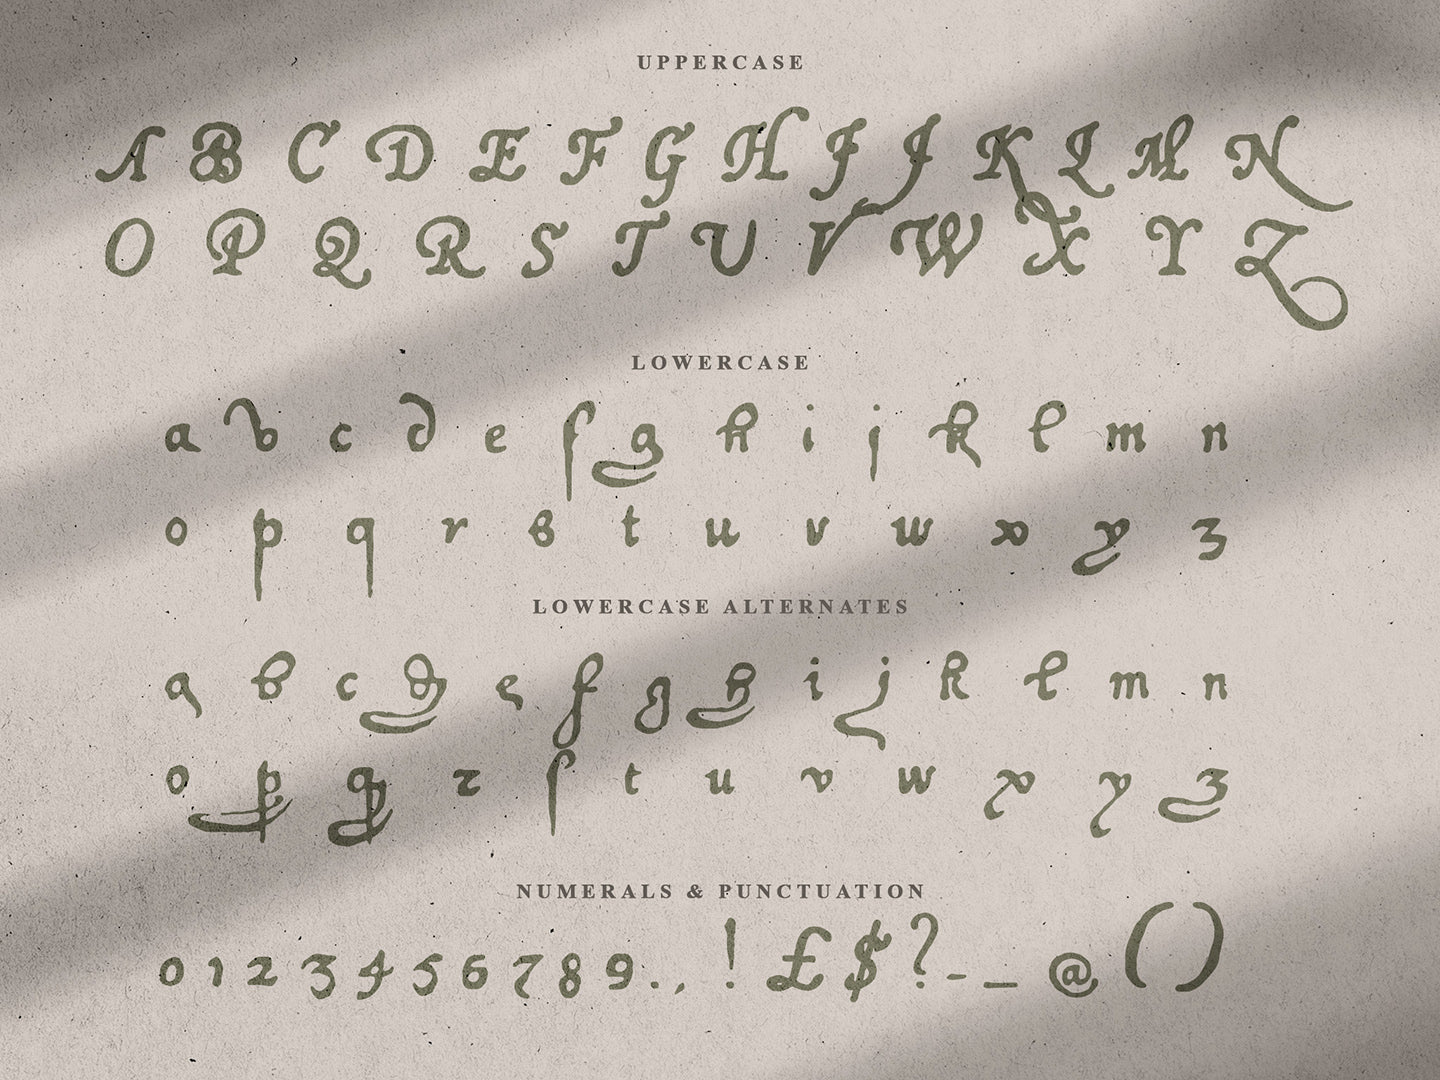 UPPERCASE
A B C D E F G H I J K L M N
O P Q R S T U V W X Y Z
LOWERCASE
a b c d e f g h i j k l m n
o p q r s t u v w x y z
LOWERCASE ALTERNATES
a b c d e f g h i j k l m n
o p q r s t u v w x y z
NUMERALS & PUNCTUATION
0 1 2 3 4 5 6 7 8 9 . , ! £ $ ? - _ @ ( )